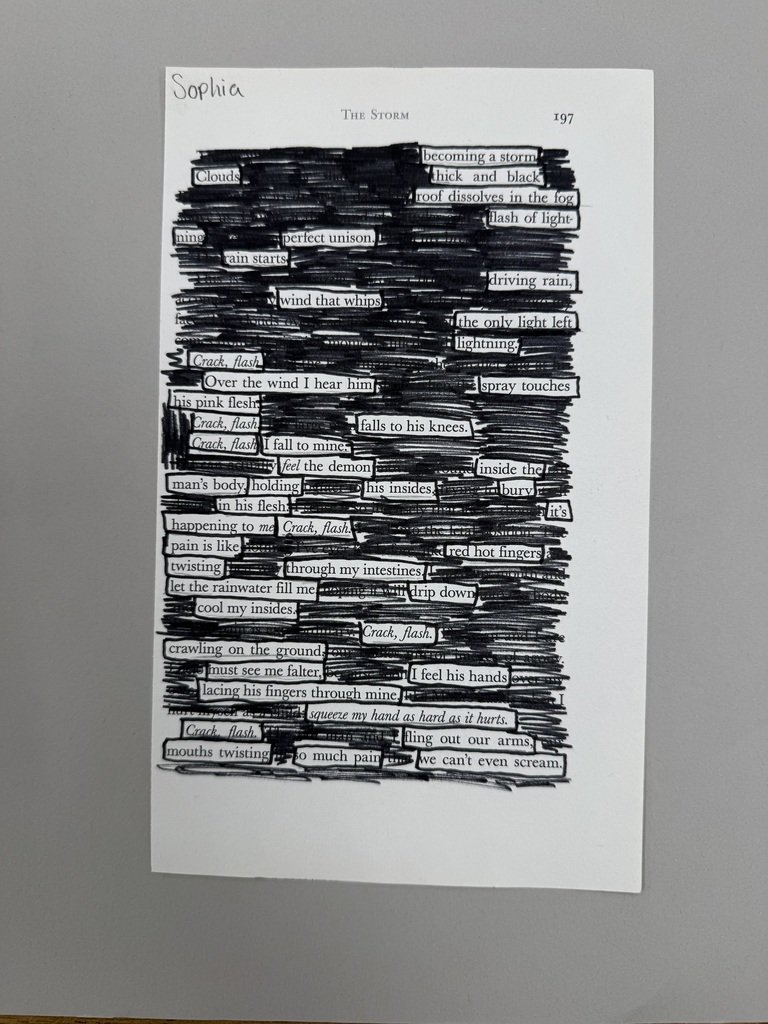 Sophia
THE STORM 197
becoming a storm
Clouds thick and black
roof dissolves in the fog
flash of light-
ning perfect unison.
rain starts
driving rain,
wind that whips
the only light left
lightning.
Crack, flash.
Over the wind I hear him spray touches
his pink flesh
Crack, flash. falls to his knees.
Crack, flash. I fall to mine.
feel the demon inside the
man's body, holding his insides, bury
in his flesh. it's
happening to me Crack, flash.
pain is like red hot fingers
twisting through my intestines
let the rainwater fill me drip down
cool my insides.
Crack, flash.
crawling on the ground,
must see me falter, I feel his hands
lacing his fingers through mine.
squeeze my hand as hard as it hurts.
Crack, flash. fling out our arms,
mouths twisting so much pain we can't even scream.